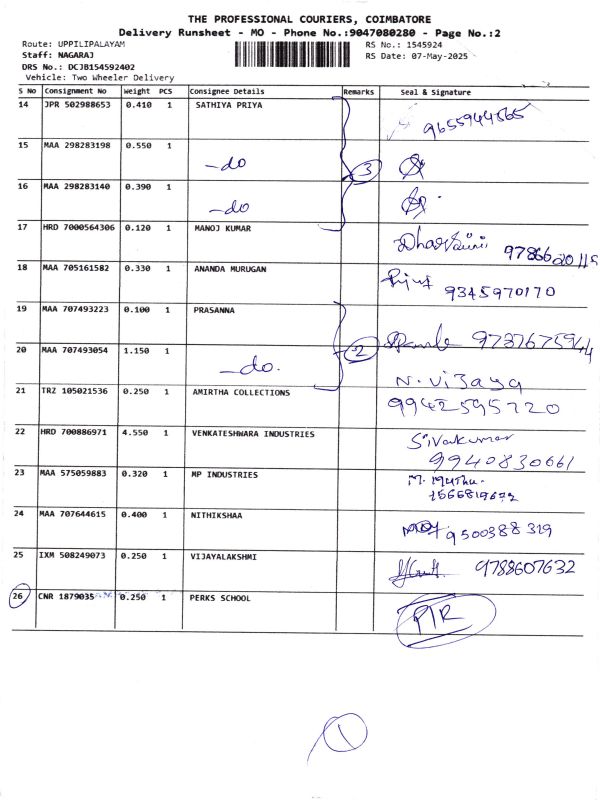 THE PROFESSIONAL COURIERS, COIMBATORE
Delivery Runsheet - MO - Phone No.:9047080280 - Page No.:2
Route: UPPILIPALAYAM RS No.: 1545924
Staff: NAGARAJ RS Date: 07-May-2025
DRS No.: DCJB154592402
Vehicle: Two Wheeler Delivery
S No Consignment No Weight PCS Consignee Details Remarks Seal & Signature
14 JPR 502988653 0.410 1 SATHIYA PRIYA 9655944565
15 MAA 298283198 0.550 1 -do 3
16 MAA 298283140 0.390 1 -do
17 HRD 7000564306 0.120 1 MANOJ KUMAR
18 MAA 705161582 0.330 1 ANANDA MURUGAN 9345970170
19 MAA 707493223 0.100 1 PRASANNA
20 MAA 707493054 1.150 1 -do. 2 N. Vijaya
21 TRZ 105021536 0.250 1 AMIRTHA COLLECTIONS 9942595720
22 HRD 700886971 4.550 1 VENKATESHWARA INDUSTRIES Sivakumar
9940830661
23 MAA 575059883 0.320 1 MP INDUSTRIES M. Muthu.
24 MAA 707644615 0.400 1 NITHIKSHAA 9500388319
25 IXM 508249073 0.250 1 VIJAYALAKSHMI 9788607632
26 CNR 1879035 0.250 1 PERKS SCHOOL PTR
1